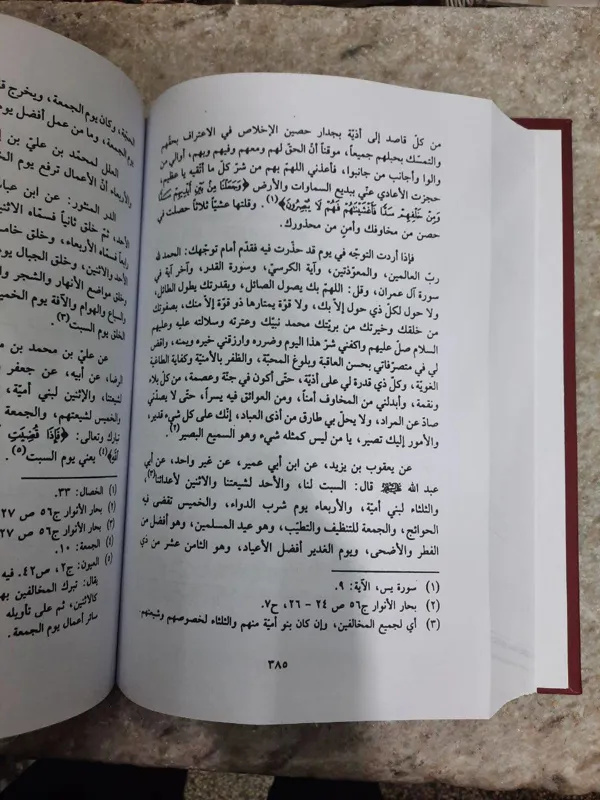 من كلّ قاصد إلى أذيّة بجدار حصين الإخلاص في الاعتراف بحقّهم
والتمسّك بحبلهم جميعاً، موقناً أنّ الحقّ لهم ومعهم وفيهم وبهم، أوالي من
والوا وأجانب من جانبوا، فأعذني اللهمّ بهم من شرّ كلّ ما أتّقيه يا عظيم،
حجزت الأعادي عنّي ببديع السماوات والأرض ﴿وَجَعَلْنَا مِنْ بَيْنِ أَيْدِيهِمْ سَدًّا
وَمِنْ خَلْفِهِمْ سَدًّا فَأَغْشَيْنَاهُمْ فَهُمْ لَا يُبْصِرُونَ﴾(١). وقلتها عشيّاً ثلاثاً حصلت في
حصن من مخاوفك وأمن من محذورك.
فإذا أردت التوجّه في يوم قد حذّرت فيه فقدّم أمام توجّهك: الحمد لله
ربّ العالمين، والمعوّذتين، وآية الكرسيّ، وسورة القدر، وآخر آية في
سورة آل عمران، وقل: اللهمّ بك يصول الصائل، وبقدرتك يطول الطائل،
ولا حول لكلّ ذي حول إلّا بك، ولا قوّة يمتارها ذو قوّة إلّا منك، بصفوتك
من خلقك وخيرتك من بريّتك محمد نبيّك وعترته وسلالته عليه وعليهم
السلام صلّ عليهم واكفني شرّ هذا اليوم وضرره وارزقني خيره ويمنه، واقض
لي في منصرّفاتي بحسن العاقبة وبلوغ المحبّة، والظفر بالأمنيّة وكفاية الطاغية
الغويّة، وكلّ ذي قدرة لي على أذيّة، حتّى أكون في جنّة وعصمة، من كلّ بلاء
ونقمة، وأبدلني من المخاوف أمناً، ومن العوائق فيه يسراً، حتّى لا يصدّني
صادّ عن المراد، ولا يحلّ بي طارق من أذى العباد، إنّك على كلّ شيء قدير،
والأمور إليك تصير، يا من ليس كمثله شيء وهو السميع البصير(٢).
عن يعقوب بن يزيد، عن ابن أبي عمير، عن غير واحد، عن أبي
عبد الله عليه السلام قال: السبت لنا، والأحد لشيعتنا والاثنين لأعدائنا(٣)،
والثلثاء لبني أميّة، والأربعاء يوم شرب الدواء، والخميس تقضى فيه
الحوائج، والجمعة للتنظيف والتطيّب، وهو عيد المسلمين، وهو أفضل من
الفطر والأضحى، ويوم الغدير أفضل الأعياد، وهو الثامن عشر من ذي
(١) سورة يس، الآية: ٩.
(٢) بحار الأنوار ج٥٦ ص ٢٤ - ٢٦، ح٧.
(٣) أي لجميع المخالفين، وإن كان بنو أميّة منهم والثلثاء لخصوصهم وشيعتهم.
٣٨٥
الجنّة، وكان يوم الجمعة، ويخرج
يوم الجمعة، وما من عمل أفضل يوم
العلل لمحمّد بن عليّ بن
والأربعاء أنّ الأعمال ترفع يوم
الدر المنثور: عن ابن عباس
الأحد، ثمّ خلق ثانياً فسمّاه الاثنين
رابعاً فسمّاه الأربعاء، وخلق خامساً
الأحد والاثنين، وخلق الجبال يوم
وخلق مواضع الأنهار والشجر
والسباع والهوام والآفة يوم الخميس
الخلق يوم السبت(٣).
عن عليّ بن محمد بن
الرضا، عن أبيه، عن جعفر
لشيعتنا، والإثنين لبني أميّة،
والخميس لشيعتهم، والجمعة
تبارك وتعالى: ﴿فَإِذَا قُضِيَتِ
(٤) يعني يوم السبت(٥).
(١) الخصال: ٣٣.
(٢) بحار الأنوار ج٥٦ ص ٢٧
(٣) بحار الأنوار ج٥٦ ص ٢٧
(٤) الجمعة: ١٠.
(٥) العيون: ج٢، ص٤٢. فيه
يقال: تبرك المخالفين
كالاثنين، ثم على تأويله
سائر أعمال يوم الجمعة.